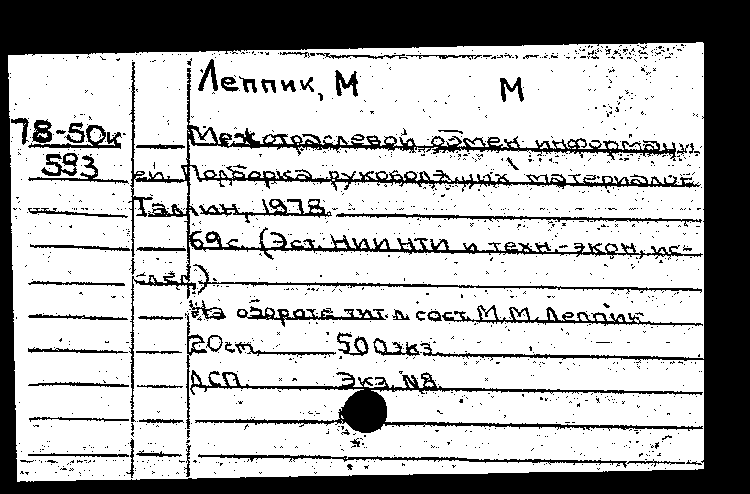 Леппик, М М
78-50к Межотраслевой обмен информаци
593 ей. Подборка руководящих материалов
Таллин, 1978.
69 с. (Эст. НИИ НТИ и техн.-экон. ис-
след.).
На обороте тит. л. сост. М.М. Леппик
20 ст. 500 экз.
ДСП. Экз. №8.